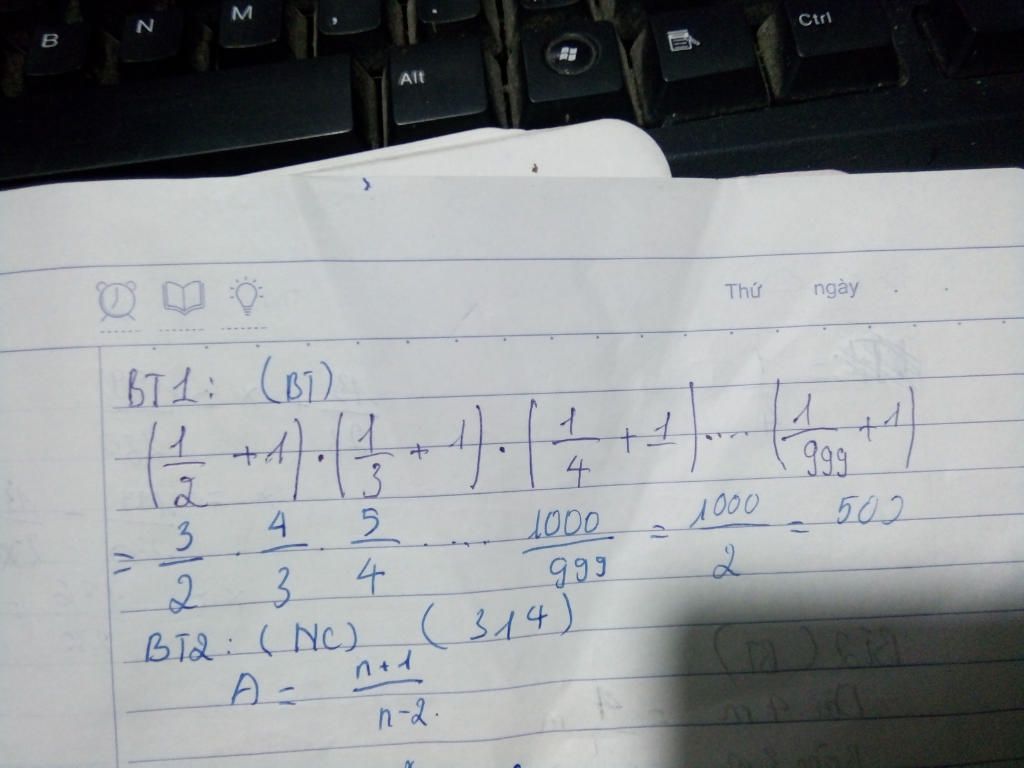 B N M , .
Alt Ctrl
Thứ ngày
BT1: (BT)
(1/2 + 1) . (1/3 + 1) . (1/4 + 1) .... (1/999 + 1)
= 3/2 . 4/3 . 5/4 .... 1000/999 = 1000/2 = 500
BT2: (NC) (314)
A = n+1/n-2.